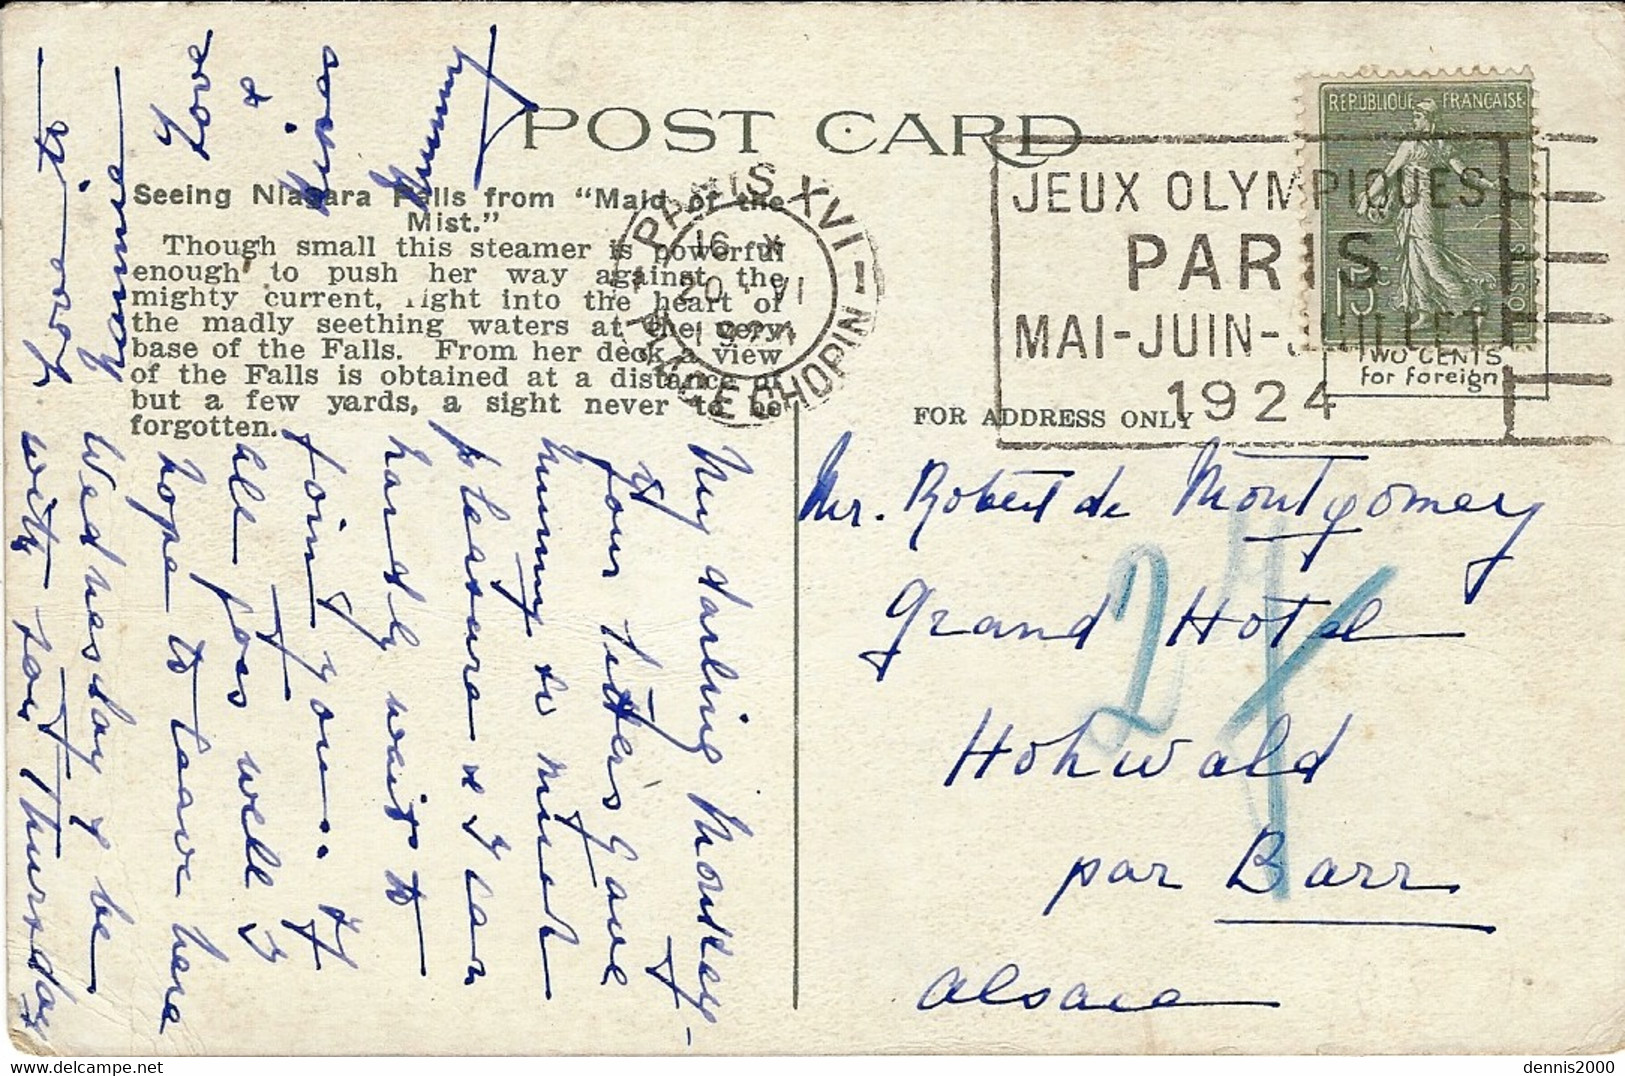 POST CARD
Seeing Niagara Falls from "Maid of the
Mist."
Though small this steamer is powerful
enough to push her way against the
mighty current, right into the heart of
the madly seething waters at the very
base of the Falls. From her deck a view
of the Falls is obtained at a distance of
but a few yards, a sight never to be
forgotten.
My darling Monkey -
Your letters gave
Mummy so much
pleasure & I can
hardly wait to
join you. If
all goes well I
hope to leave here
Wednesday & be
with you Thursday
morning
love
&
Mummy
PARIS XVI
16 H
20 VI
PLACE CHOPIN
JEUX OLYMPIQUES
PARIS
MAI-JUIN-JUILLET
1924
REPUBLIQUE FRANÇAISE
15c
POSTES
TWO CENTS
for foreign
FOR ADDRESS ONLY
Mr. Robert de Montgomery
Grand Hotel
Hohwald
par Barr
Alsace
dennis2000